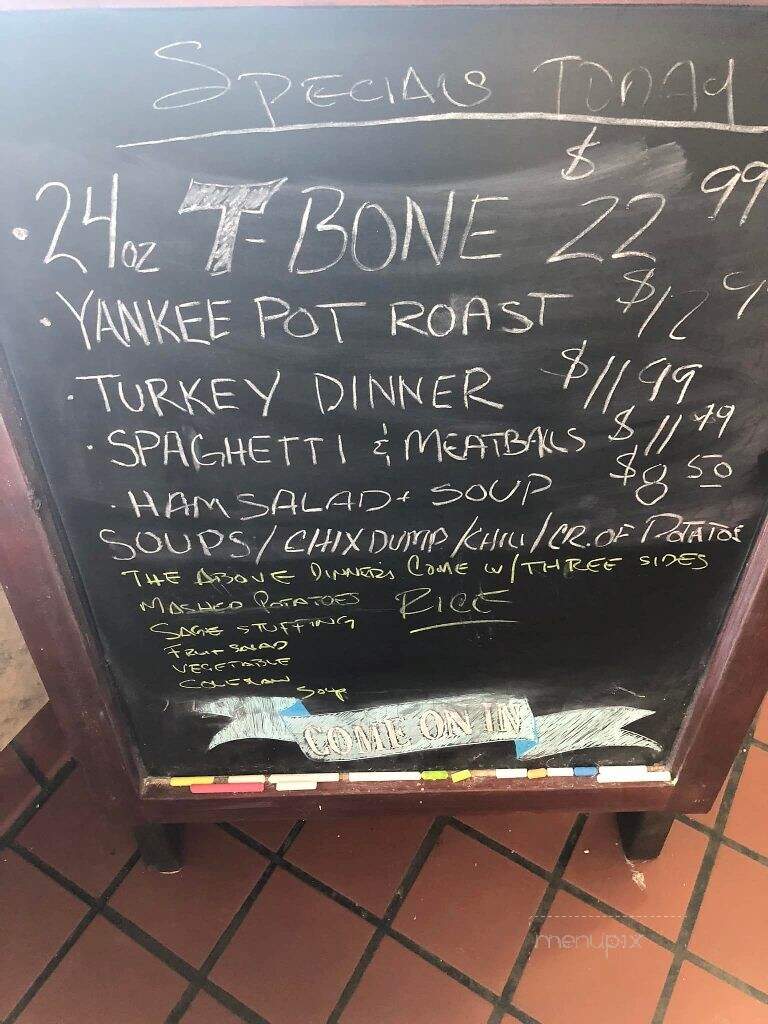 SPECIALS TODAY
· 24oz T-BONE $22 99
· YANKEE POT ROAST $12 9
· TURKEY DINNER $11 99
· SPAGHETTI & MEATBALLS $11 99
· HAM SALAD + SOUP $8 50
SOUPS / CHIX DUMP / CHILI / CR. OF POTATOE
THE ABOVE DINNERS COME W/ THREE SIDES
MASHED POTATOES RICE
SAGE STUFFING
FRUIT SALAD
VEGETABLE
COLESLAW
SOUP
COME ON IN
menupix